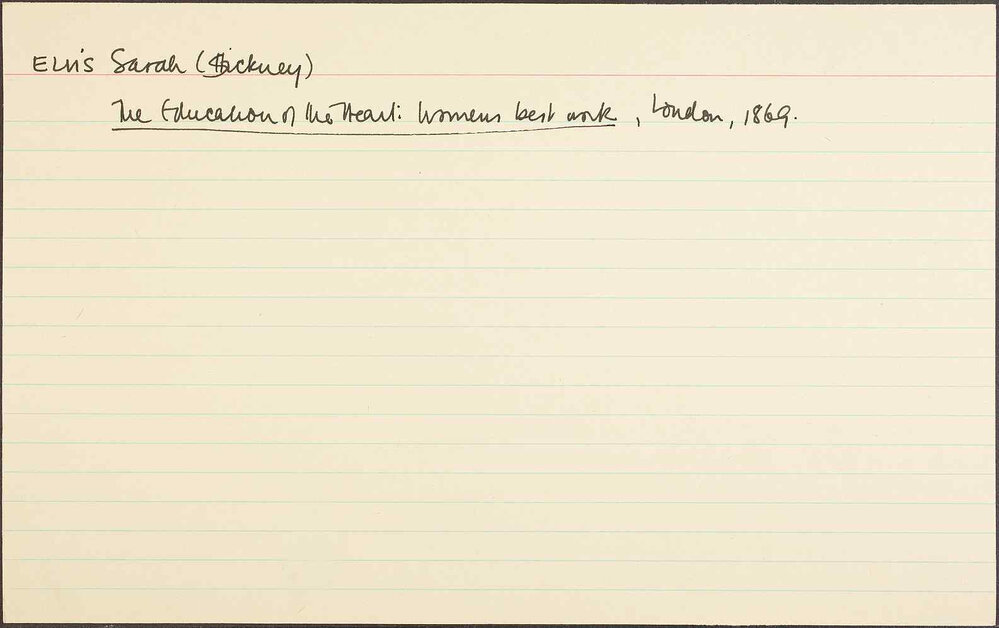 ELLIS Sarah (Stickney)
The Education of the Heart: Womens best work, London, 1869.